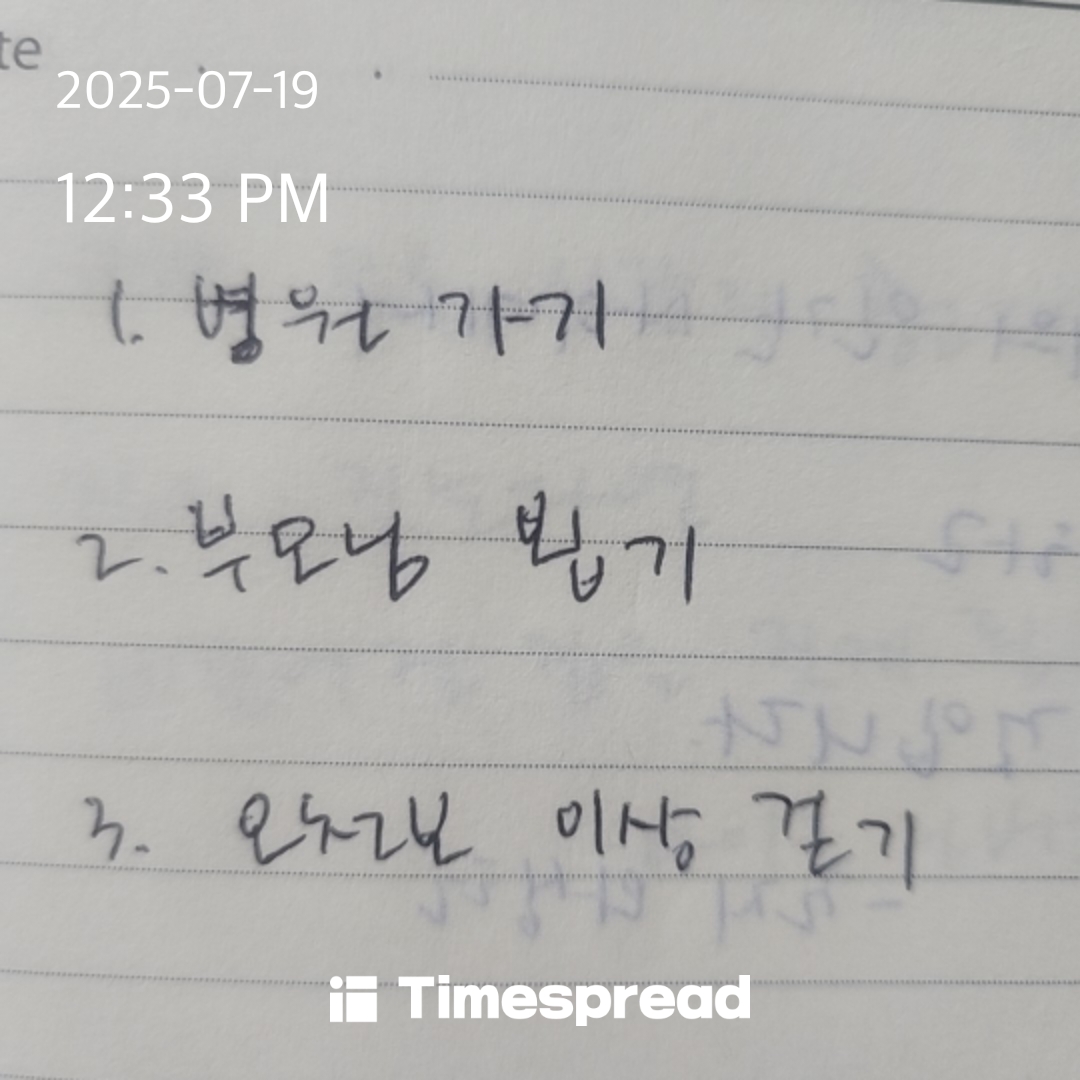 te
2025-07-19
12:33 PM
1. 병원 가기
2. 부모님 뵙기
3. 오천보 이상 걷기
Timespread